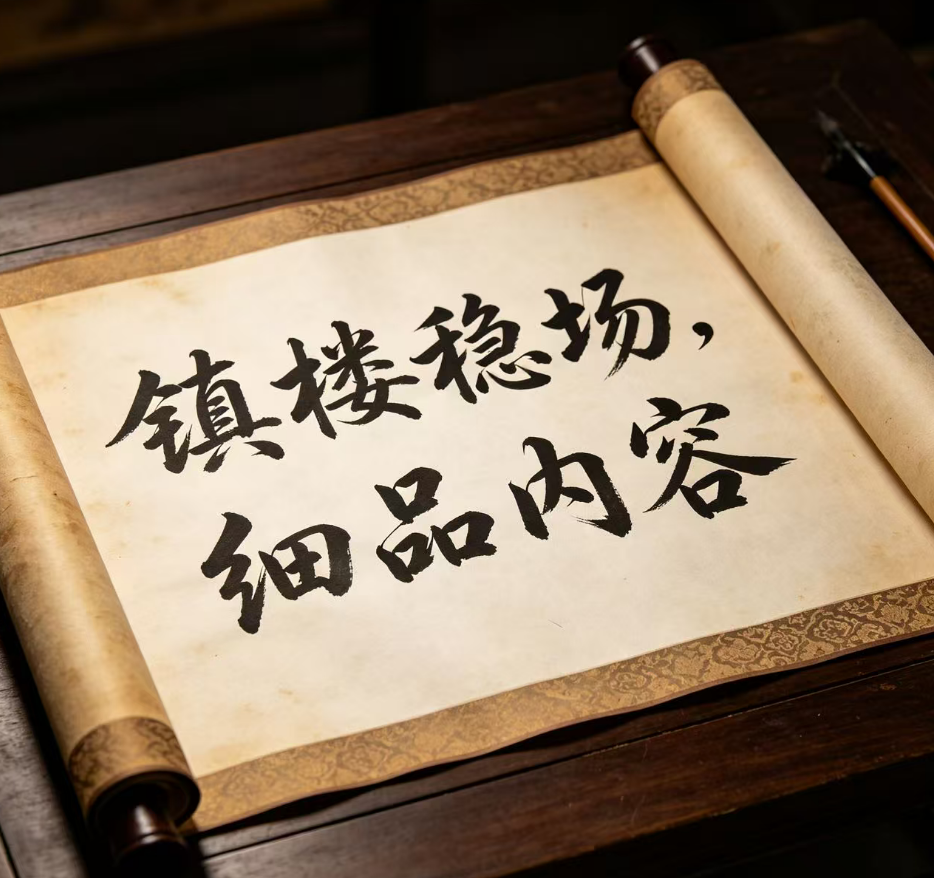 镇楼稳场，
细品内容